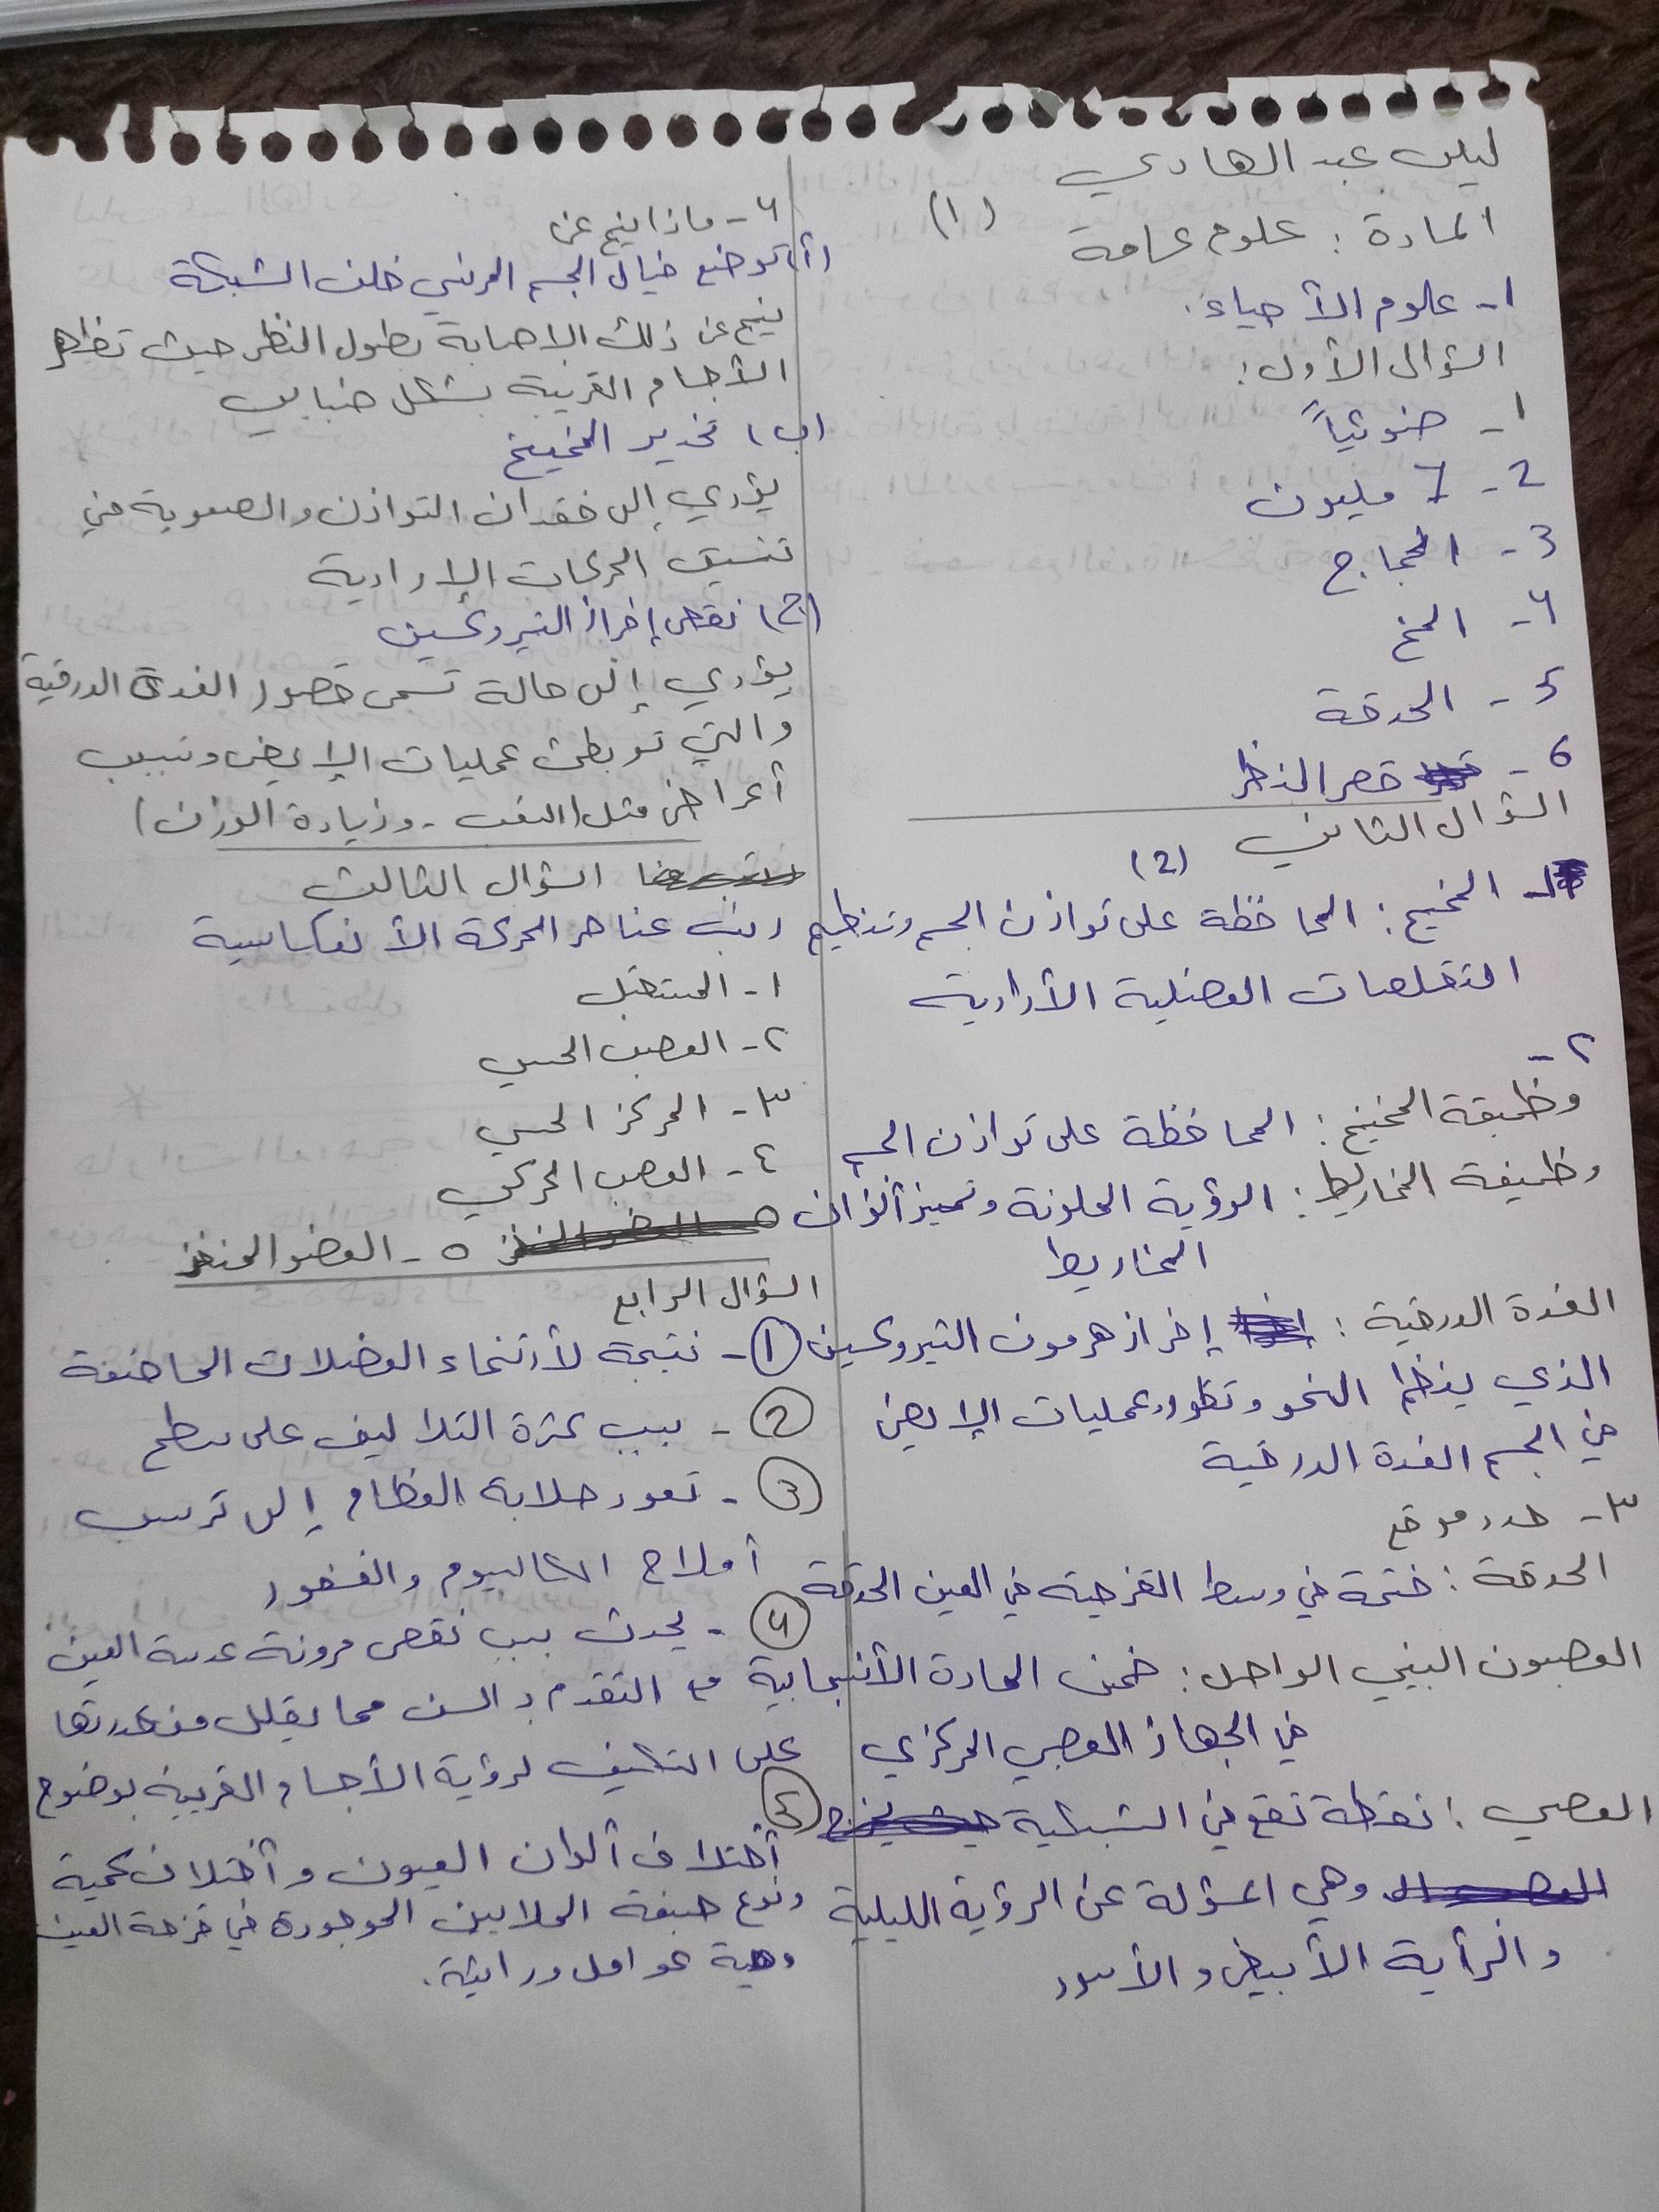 ليلى عبد الهادي
المادة : علوم عامة (١)
١- علوم الأحياء :
السؤال الأول :
١- ضوئياً
2- 7 مليون
3- الحجاج
4- المخ
5- الحدقة
6- قصر النظر
السؤال الثاني (2)
١- المخيخ : المحافظة على توازن الجسم وتنظيم
التقلصات العضلية الأرادية
٢-
وظيفة المخيخ : المحافظة على توازن الجسم
وظيفة المخاريط : الرؤية الملونة وتميز ألوان
المخاريط
الغدة الدرقية : إفراز هرمون التيروكسين
الذي ينظم النمو وتطور عمليات الإيض
في الجسم الغدة الدرقية
٣- حدد موقع
الحدقة : فتحة في وسط القزحية في العين الحدقة
العصبون البيني الواصل : ضمن المادة الأنيجابية
في الجهاز العصبي المركزي
العصي : نقطة تقع في الشبكية
وهي المسؤلة عن الرؤية الليلية
والرأية الأبيض والأسود
4- ماذا ينتج عن
(أ) توضع خيال الجسم المرئي خلف الشبكة
ينتج عن ذلك الاصابة بطول النظر حيث تظهر
الأجسام القريبة بشكل ضبابي
(ب) تخدير المخيخ
يؤدي إلى فقدان التوازن والصعوبة في
تنسيق الحركات الإرادية
(ج) نقص إفراز التيروكسين
يؤدي إلى حالة تسمى قصور الغدة الدرقية
والتي تو بطئ عمليات الإيض وتسبب
أعراض مثل (التعب - وزيادة الوزن)
السؤال الثالث
رتب عناصر الحركة الأنعكاسية
١- المستقبل
٢- العصب الحسي
٣- المركز الحسي
٤- العصب الحركي
٥- العضو المنفذ
السؤال الرابع
1- نتيجة لأرتخاء العضلات الماضغة
2- بسبب كثرة التلافيف على سطح
3- تعود صلابة العظام إلى ترسب
أملاح الكالسيوم والفسفور
4- يحدث بسبب نقص مرونة عدسة العين
مع التقدم بالسن مما يقلل من قدرتها
على التكيف لرؤية الأجسام القريبة بوضوح
5 أختلاف ألوان العيون وأختلاف كمية
ونوع صبغة الملانين الموجودة في قزحة العين
وهية عوامل وراثية .